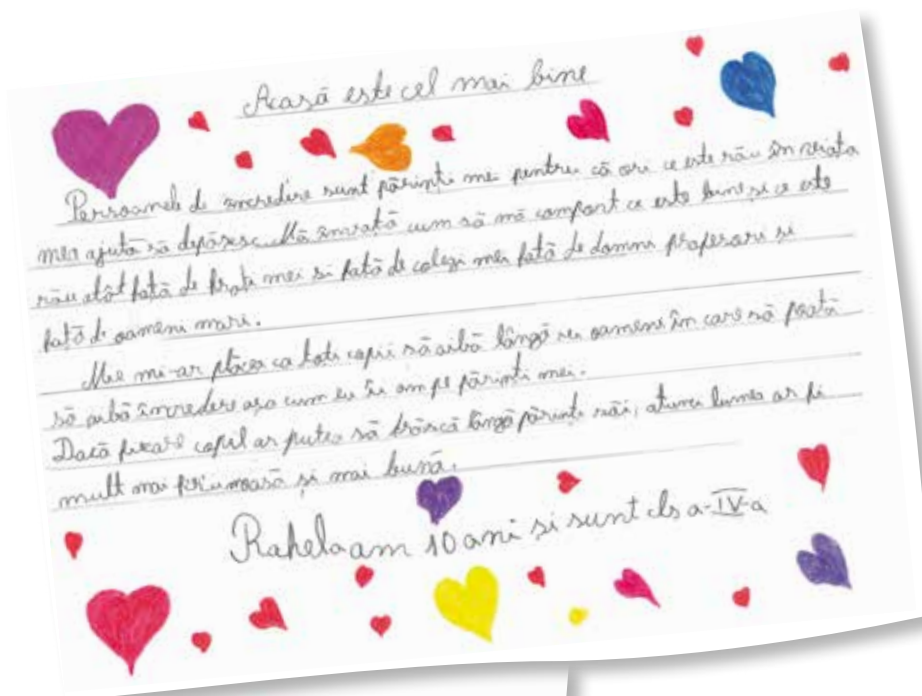 Acasă este cel mai bine
Persoanele de incredere sunt părinți mei pentru că ori ce este rău în viața
mea ajută să depăsesc. Mă învață cum să mă comport ce este bine și ce este
rău atât față de frați mei si față de colegi mei față de domni profesori si
față de oameni mari.
Mie mi-ar plăcea ca toti copii să aibă lângă ei oameni în care să poată
să aibă încredere așa cum eu îi am pe părinti mei.
Dacă fiecare copil ar putea să trăiscă lângă părinți săi, atunci lumea ar fi
mult mai frumoasă și mai bună.
Rahela am 10 ani si sunt cls a-IV-a